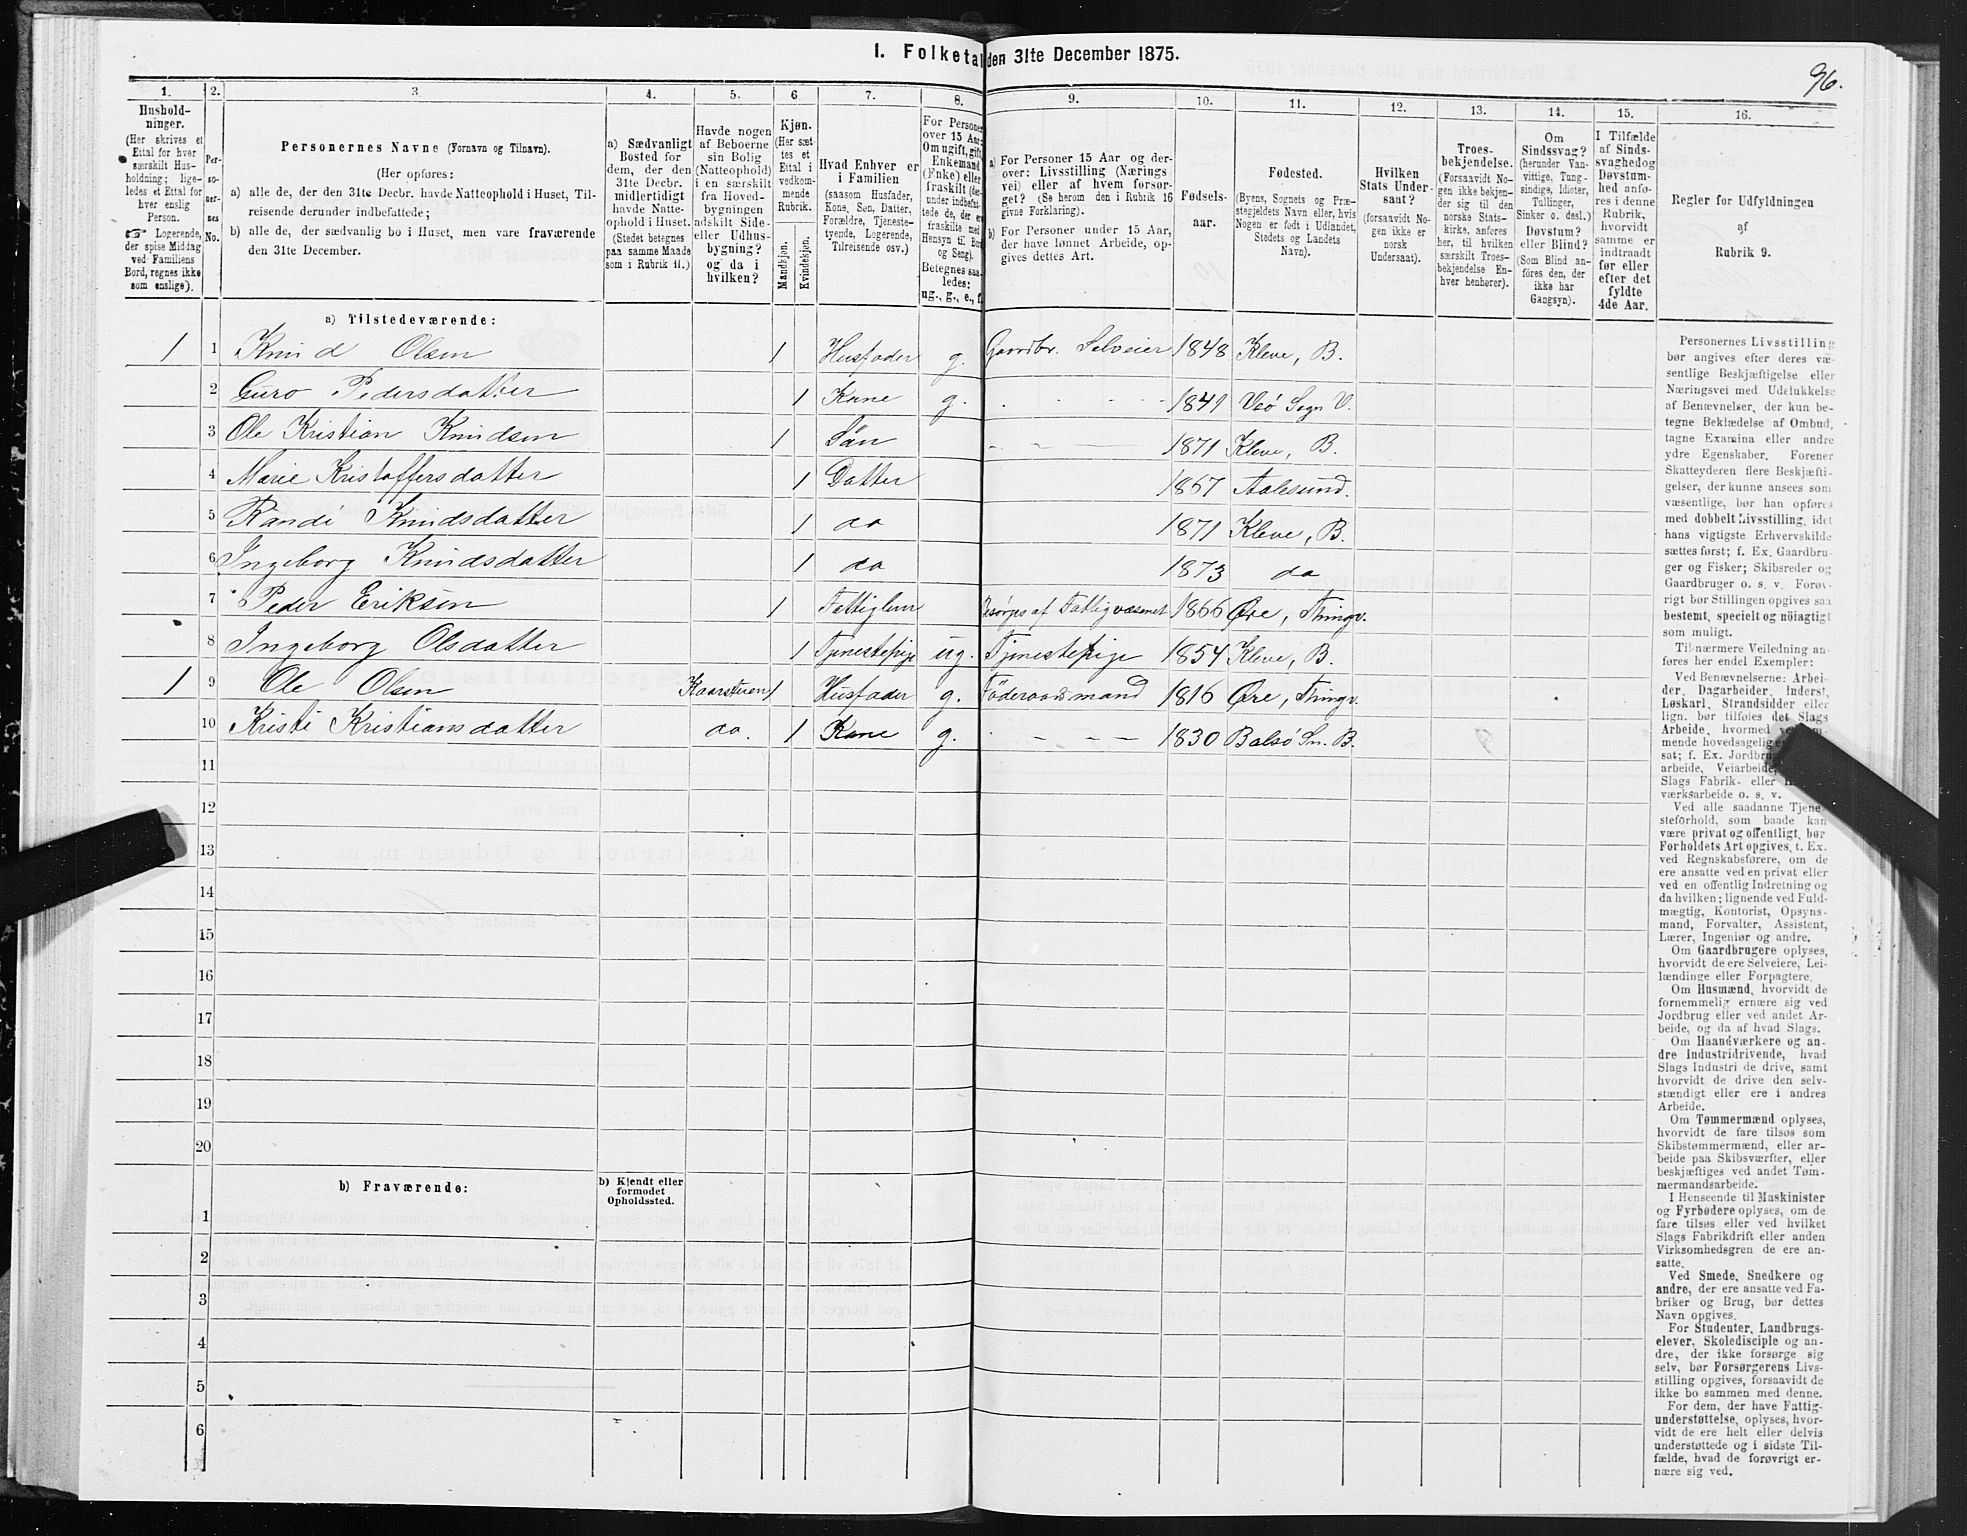 1. Folketal den 31te December 1875.
96.
1.
2.
3.
4.
5.
6
7.
8.
9.
10.
11.
12.
13.
14.
15.
16.
Hushold-
ninger.
(Her skrives et
Ettal for hver
særskilt Hus-
holdning; lige-
ledes et Ettal for
hver enslig
Person.
☞ Logerende,
der spise Middag
ved Familiens
Bord, regnes ikke
som enslige).
Per-
so-
ner-
nes
No.
Personernes Navne (Fornavn og Tilnavn).
(Her opføres:
a) alle de, der den 31te Decbr. havde Natteophold i Huset, Til-
reisende derunder indbefattede;
b) alle de, der sædvanlig bo i Huset, men vare fraværende
den 31te December.
a) Sædvanligt
Bosted for
dem, der den
31te Decbr.
midlertidigt
havde Natte-
ophold i Huset.
(Stedet betegnes
paa samme Maade
som i Rubrik 11.)
Havde nogen
af Beboerne
sin Bolig
(Natteophold)
i en særskilt
fra Hoved-
bygningen
adskilt Side-
eller Udhus-
bygning?
og da i
hvilken?
Kjøn.
(Her sæt-
tes et
Ettal i
vedkom-
mende
Rubrik.
Mandkjøn.
Kvindekjøn.
Hvad Enhver er
i Familien
(saasom Husfader,
Kone, Søn, Datter,
Forældre, Tjeneste-
tyende, Logerende,
Tilreisende osv.)
For Personer
over 15 Aar:
Om ugift, gift,
Enkemand
(Enke) eller
fraskilt (der-
under indbefat-
tede de, der er
fraskilte med
Hensyn til Bord
og Seng).
Betegnes saa-
ledes:
ug., g., e., f.
a) For Personer 15 Aar og der-
over: Livsstilling (Nærings-
vei) eller af hvem forsør-
get? (Se herom den i Rubrik 16
givne Forklaring).
b) For Personer under 15 Aar,
der have lønnet Arbeide, op-
gives dettes Art.
Fødsels-
aar.
Fødested.
(Byens, Sognets og Præ-
stegjeldets Navn eller, hvis
Nogen er født i Udlandet,
Stedets og Landets
Navn).
Hvilken
Stats Under-
saat?
(forsaavidt No-
gen ikke er
norsk
Undersaat).
Troes-
bekjendelse.
(Forsaavidt No-
gen ikke bekjen-
der sig til den
norske Stats-
kirke, anføres
her, til hvilken
særskilt Troes-
bekjendelse En-
hver henhører).
Om
Sindssvag?
(herunder Van-
vittige, Tung-
sindige, Idioter,
Tullinger,
Sinker o. desl.)
Døvstum?
eller Blind?
(Som Blind an-
føres den, der
ikke har
Gangsyn).
I Tilfælde
af Sinds-
svaghedog
Døvstum-
hed anfø-
res i denne
Rubrik,
hvorvidt
samme er
indtraadt
før eller
efter det
fyldte
4de Aar.
Regler for Udfyldningen
af
Rubrik 9.
a) Tilstedeværende:
1 1 Knud Olsen 1 Husfader g. Gaardbr. Selveier 1848 Kleve, B.
2 Guro Pedersdatter 1 Kone g. 1841 Veø Sogn V.
3 Ole Kristian Knudsen 1 Søn 1871 Kleve, B.
4 Marie Kristoffersdatter 1 Datter 1867 Aalesund.
5 Randi Knudsdatter 1 do 1871 Kleve, B.
6 Ingeborg Knudsdatter 1 do 1873 do
7 Peder Eriksen 1 Fattiglem Besørges af Fattigvæsenet 1866 Øre, Thingv.
8 Ingeborg Olsdatter 1 Tjenestepige ug. Tjenestepige 1854 Kleve, B.
1 9 Ole Olsen Kaarstuen 1 Husfader g. Föderaadsmand 1816 Øre, Thingv.
10 Kristi Kristiansdatter do. 1 Kone g. 1830 Bolsø Sn. B.
11
12
13
14
15
16
17
18
19
20
b) Fraværende:
b) Kjendt eller
formodet
Opholdssted.
1
2
3
4
5
6
Personernes Livsstilling
bør angives efter deres væ-
sentlige Beskjæftigelse eller
Næringsvei med Udelukkelse
af Benævnelser, der kun be-
tegne Beklædelse af Ombud,
tagne Examina eller andre
ydre Egenskaber. Forener
Skatteyderen flere Beskjæfti-
gelser, der kunne ansees som
væsentlige, bør han opføres
med dobbelt Livsstilling, idet
hans vigtigste Erhvervskilde
sættes først; f. Ex. Gaardbru-
ger og Fisker; Skibsreder og
Gaardbruger o. s. v. Forøv-
rigt bør Stillingen opgives saa
bestemt, specielt og nöiagtigt
som muligt.
Til nærmere Veiledning an-
føres her endel Exempler:
Ved Benævnelserne: Arbei-
der, Dagarbeider, Inderst,
Løskarl, Strandsidder eller
lign. bør tilføies det Slags
Arbeide, hvormed
mende hovedsagelig
sat; f. Ex. Jordbru
arbeide, Veiarbeide,
Slags Fabrik- eller
værksarbeide o. s. v.
Ved alle saadanne Tjene-
steforhold, som baade kan
være privat og offentligt, bør
Forholdets Art opgives, t. Ex.
ved Regnskabsførere, om de
ere ansatte ved en privat eller
ved en offentlig Indretning og
da hvilken; lignende ved Fuld-
mægtig, Kontorist, Opsyns-
mand, Forvalter, Assistent,
Lærer, Ingeniør og andre.
Om Gaardbrugere oplyses,
hvorvidt de ere Selveiere, Lei-
lændinge eller Forpagtere.
Om Husmænd, hvorvidt de
fornemmelig ernære sig ved
Jordbrug eller ved andet Ar-
beide, og da af hvad Slags.
Om Haandværkere og an-
dre Industridrivende, hvad
Slags Industri de drive, samt
hvorvidt de drive den selv-
stændigt eller ere i andres
Arbeide.
Om Tømmermænd oplyses,
hvorvidt de fare tilsøs som
Skibstømmermænd, eller ar-
beide paa Skibsværfter, eller
beskjæftiges ved andet Tøm-
mermandsarbeide.
I Henseende til Maskinister
og Fyrbødere oplyses, om de
fare tilsøs eller ved hvilket
Slags Fabrikdrift eller anden
Virksomhedsgren de ere an-
satte.
Ved Smede, Snedkere og
andre, der ere ansatte ved Fa-
briker og Brug, bør dettes
Navn opgives.
For Studenter, Landbrugs-
elever, Skoledisciple og an-
dre, der ikke forsørge sig
selv, bør Forsørgerens Livs-
stilling opgives, forsaavidt de
ikke bo sammen med denne.
For dem, der have Fattig-
understøttelse, oplyses, hvor-
vidt de ere helt eller delvis
understøttede og i sidste Til-
fælde, hvad de forøvrigt er-
nære sig ved.